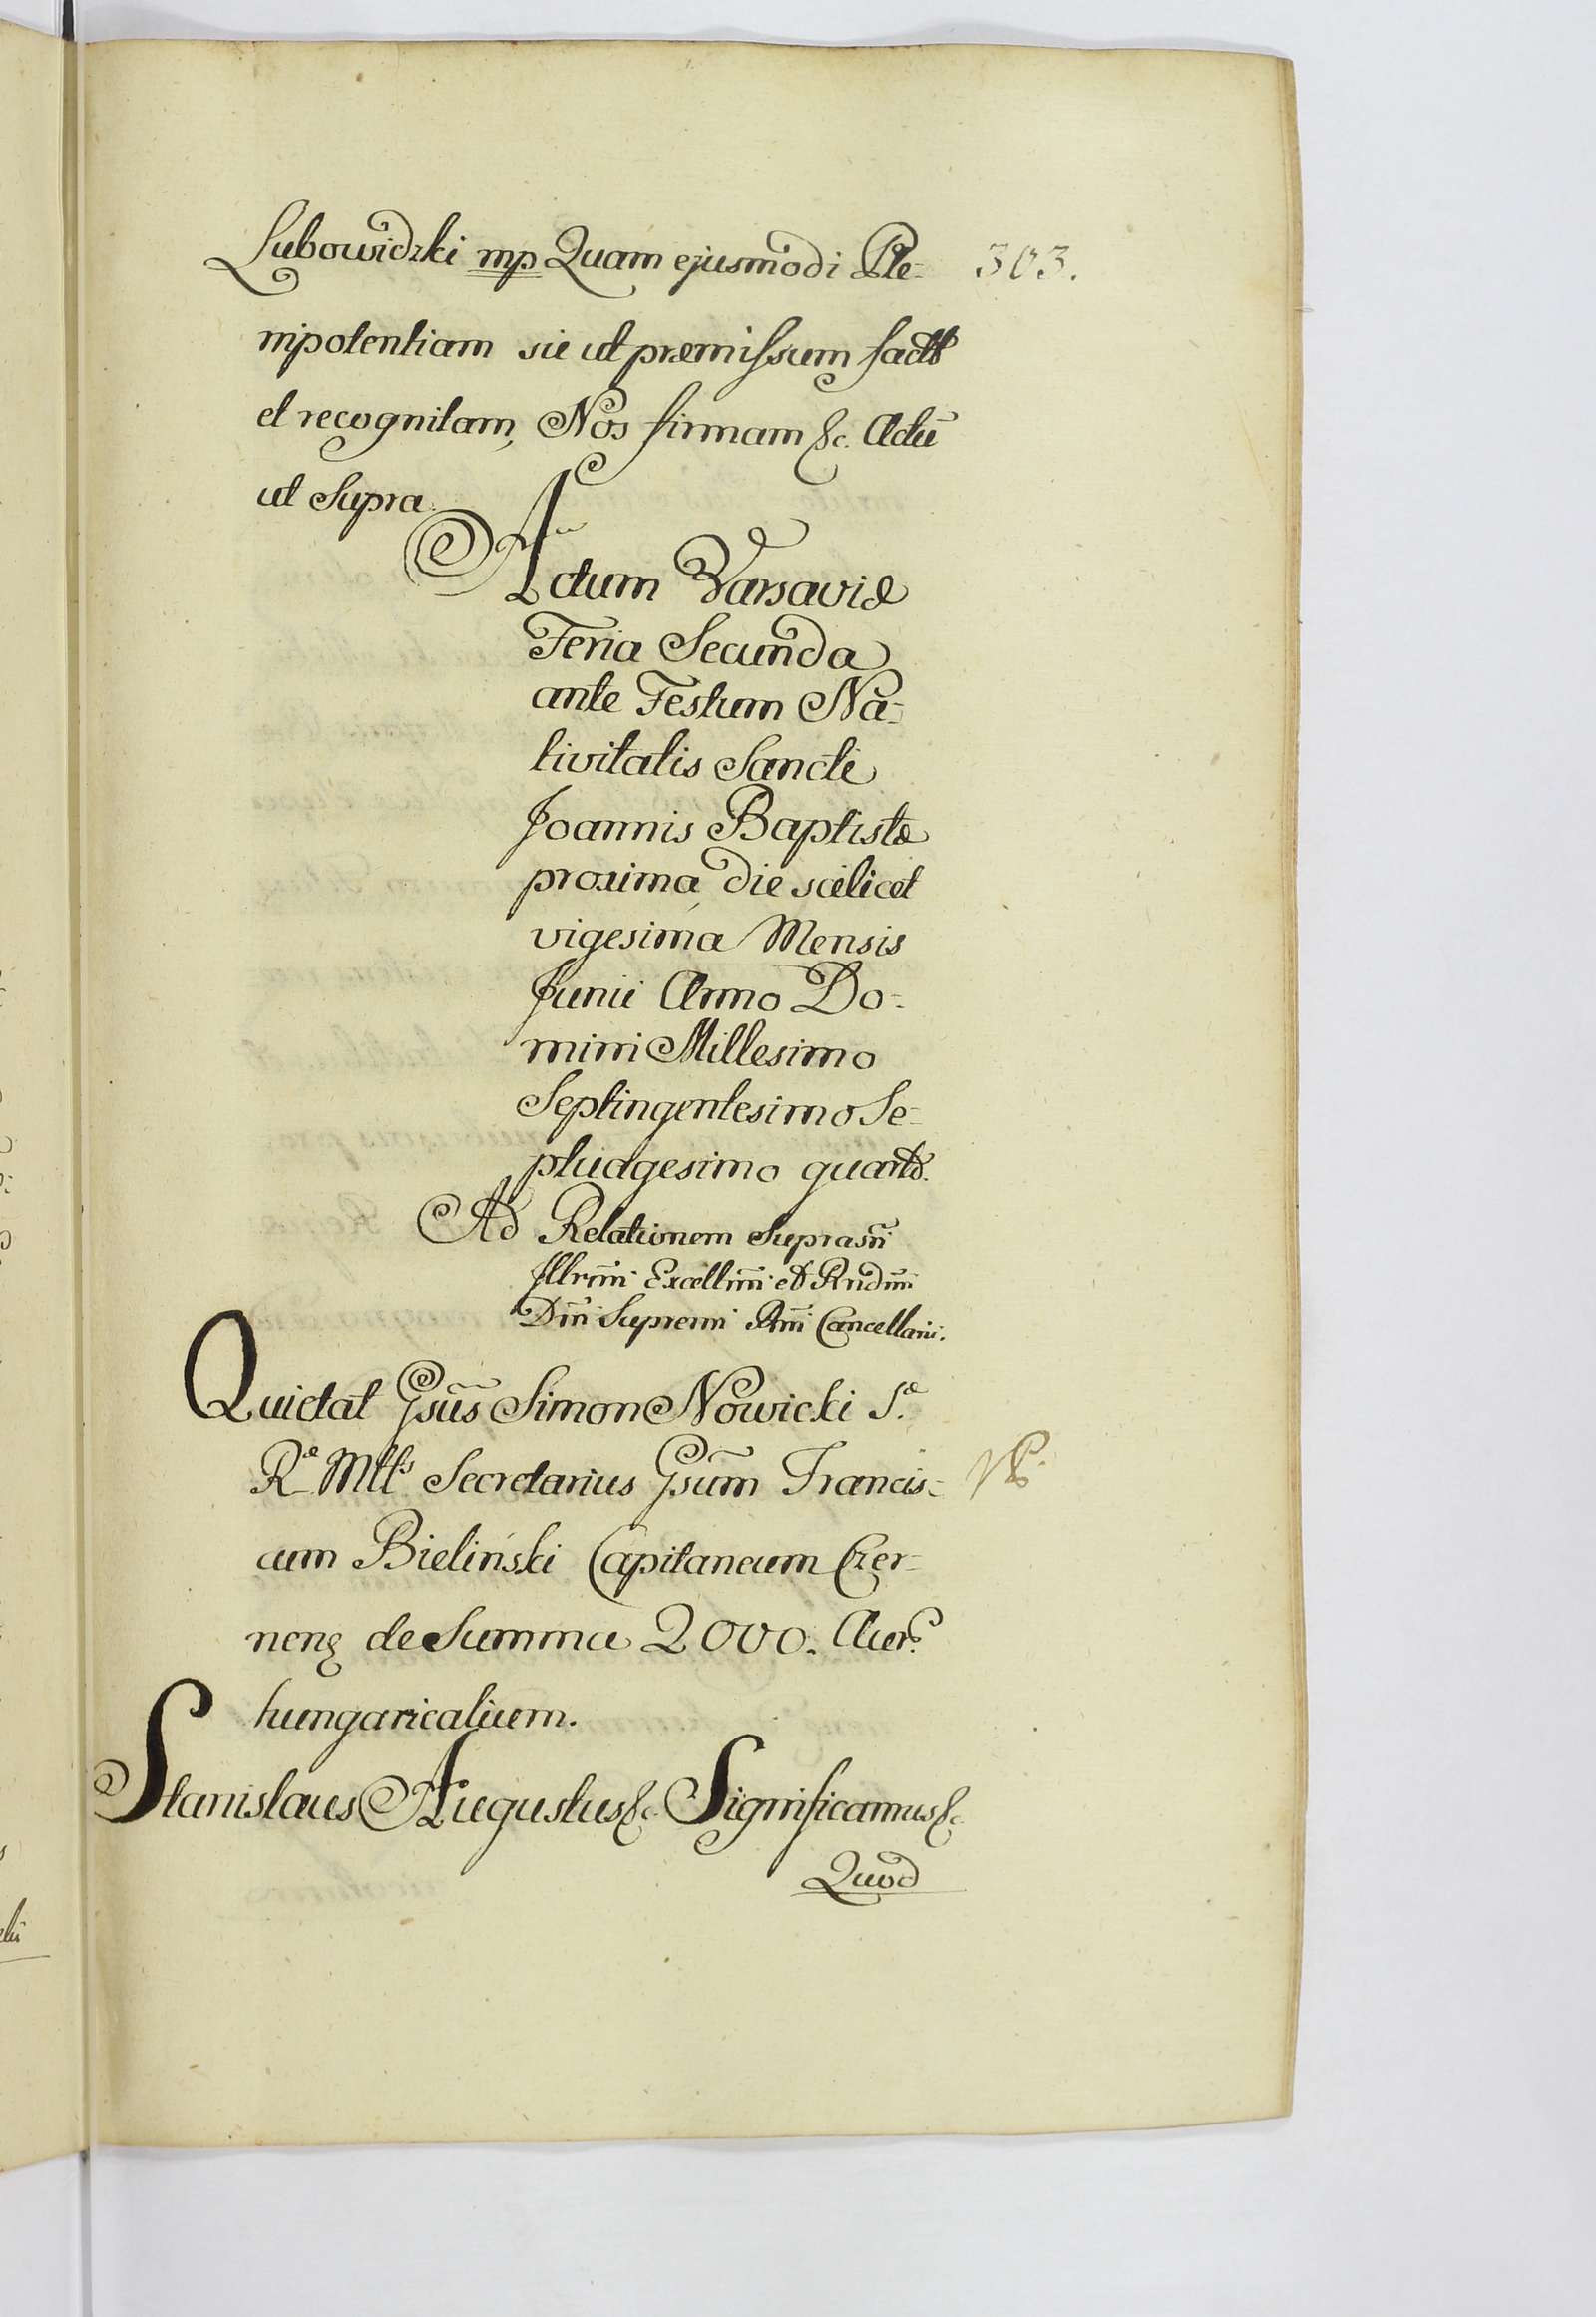 Lubowidzki mp Quam ejusmodi Ple- 303.
nipotentiam sic ut præmissum factā
et recognitam, Nos firmam &c. Actū
ut Supra.
Actum Varsaviæ
Feria Secunda
ante Festum Na-
tivitatis Sancti
Joannis Baptistæ
proxima die scilicet
vigesima Mensis
Junii Anno Do-
mini Millesimo
Septingentesimo Se-
ptuagesimo quarto.
Ad Relationem Suprasñi
Illrm̃i Excellm̃i et Rndm̃i
Dñi Supremi Rñi Cancellarii.
Quietat Gsūs Simon Nowicki S.ᵃ
Rᵃ Mttˢ Secretarius Gsūm Francis-
cum Bieliński Capitaneum Czer-
neng de Summa 2000. Aur.
hungaricalium.
Stanislaus Augustus &c. Significamus &c.
Quod